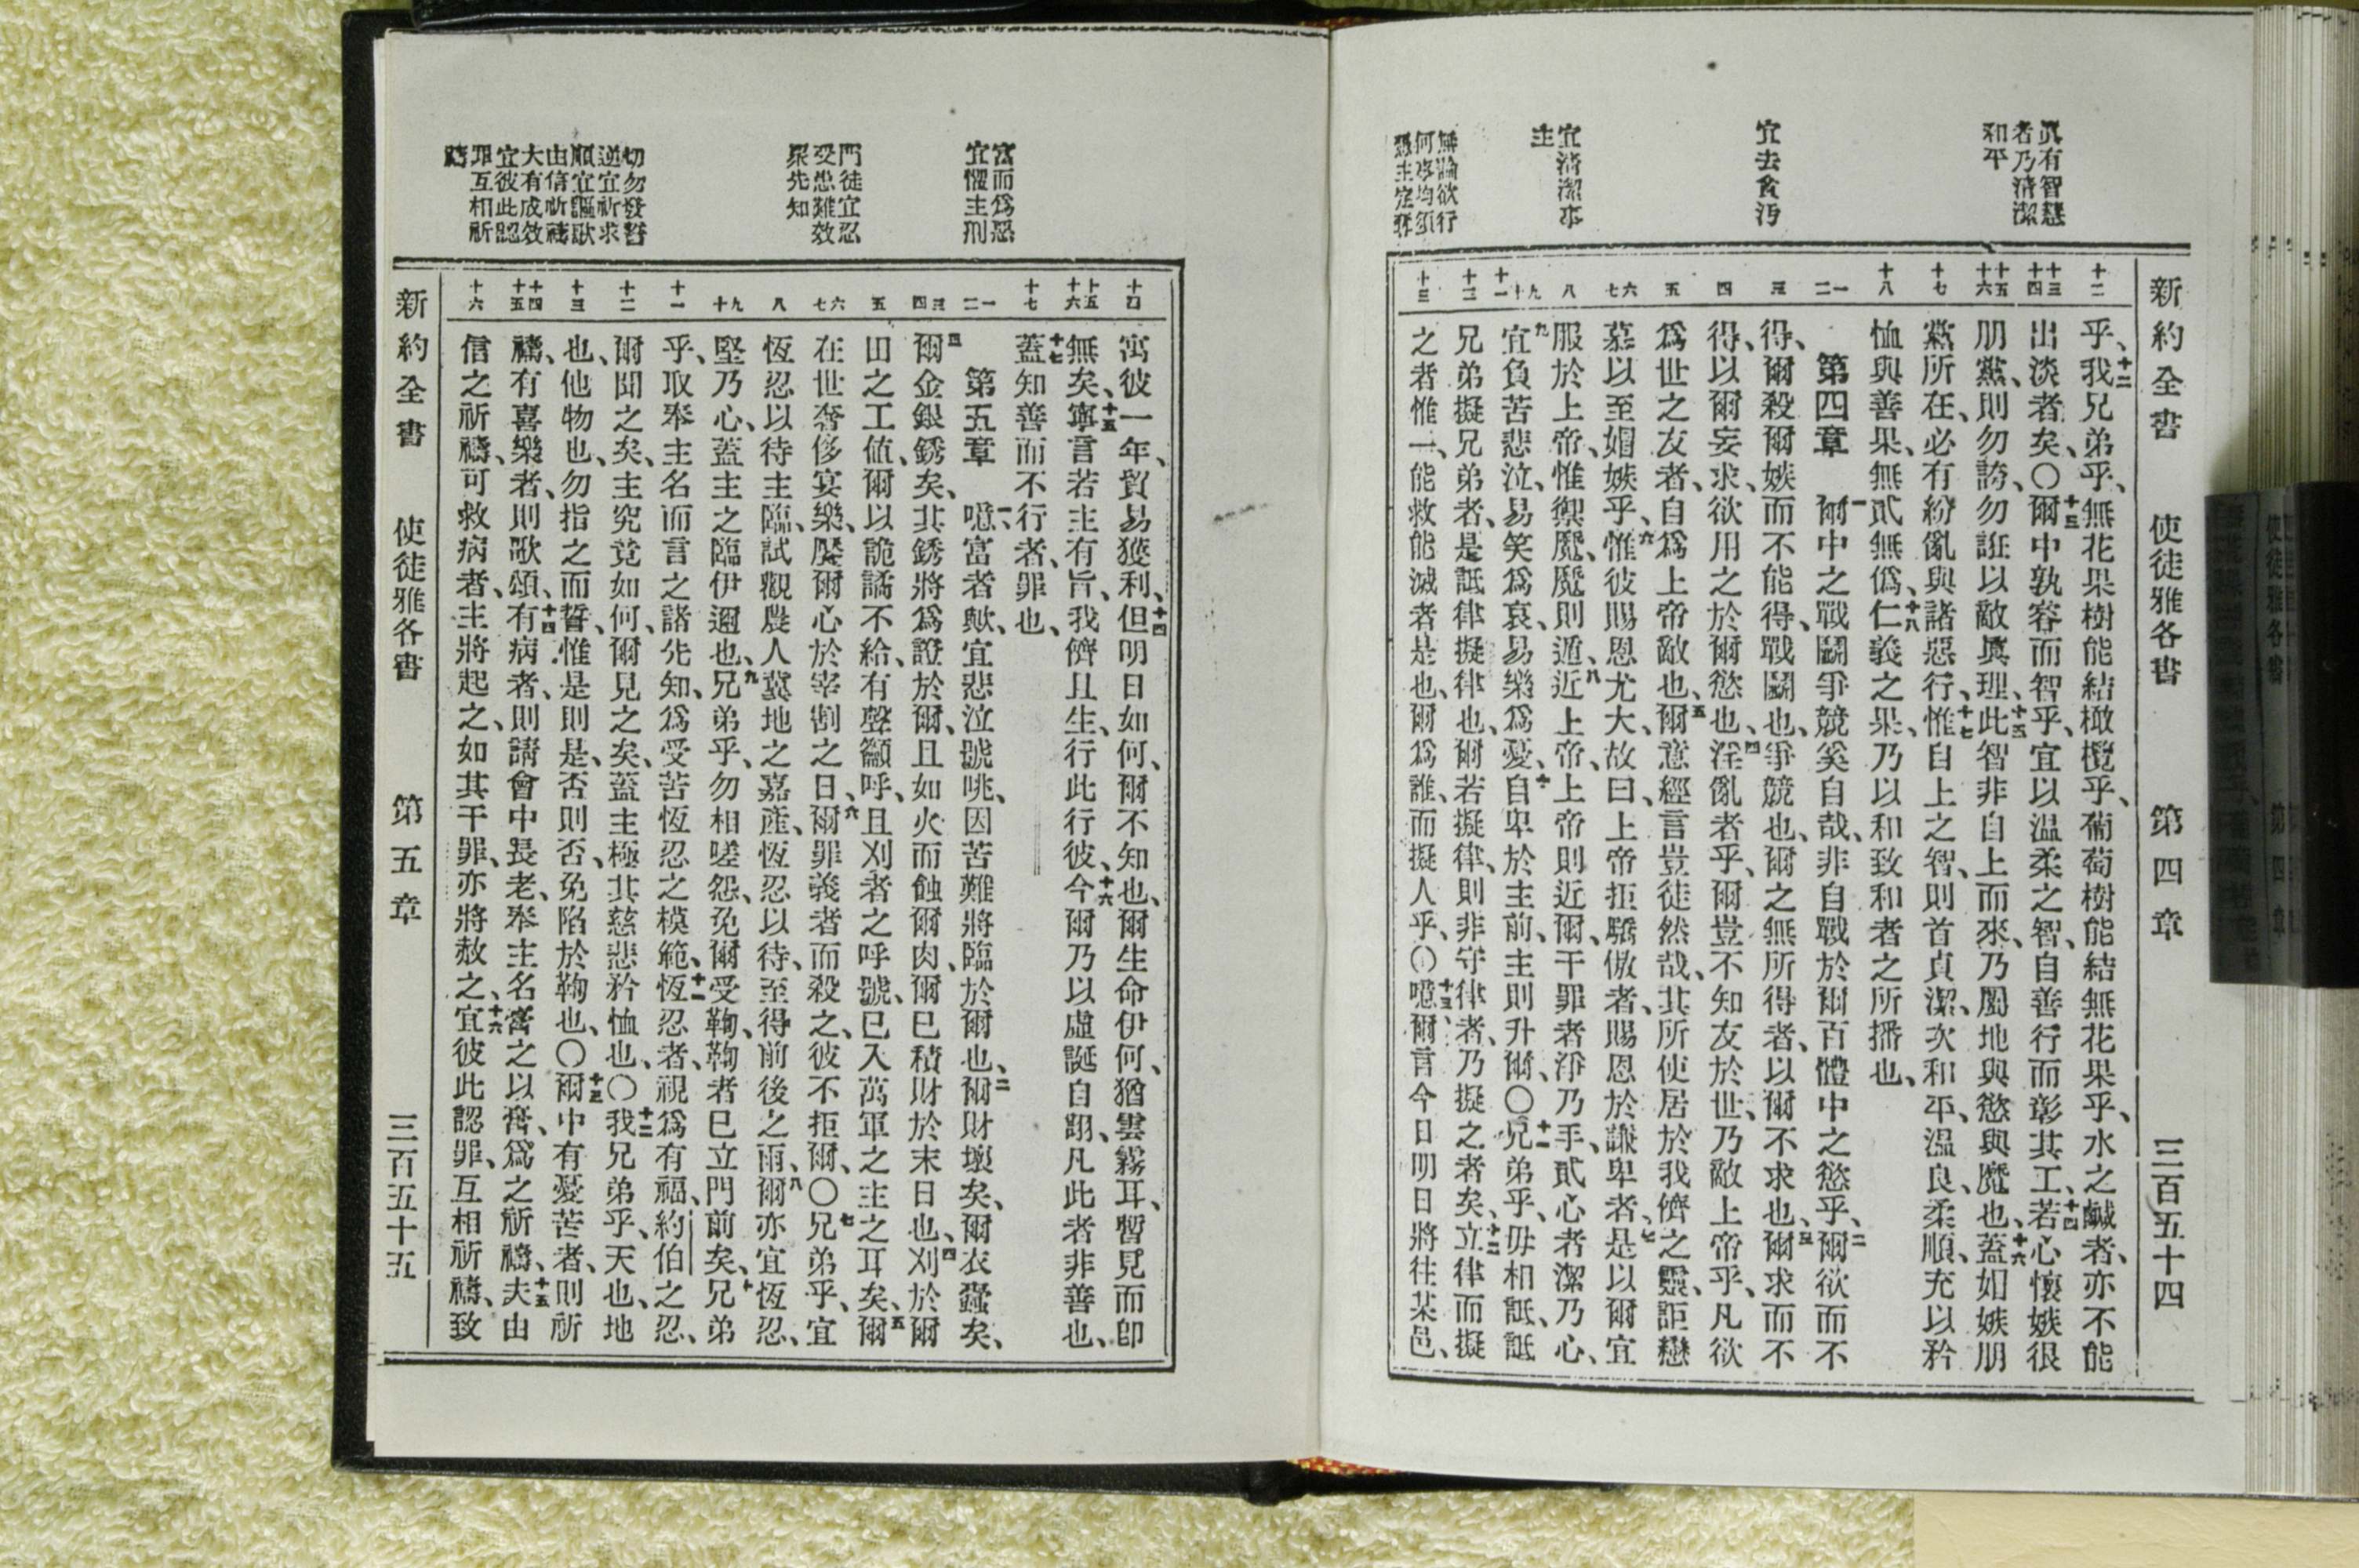 新約全書 使徒雅各書 第四章 三百五十四
眞有智慧
者乃清潔
和平
宜去貪汚
宜清潔事
主
無論欲行
何事均須
憑主定奪
十二
十三 十四
十五 十六
十七
十八
一 二
三
四
五
六 七
八
九 十 十一
十二
十三
乎、十二我兄弟乎、無花果樹能結橄欖乎、葡萄樹能結無花果乎、水之鹹者、亦不能
出淡者矣、〇十三爾中孰容而智乎、宜以温柔之智、自善行而彰其工、十四若心懷嫉很
朋黨、則勿誇、勿誑以敵眞理、十五此智非自上而來、乃屬地與慾與魔也、十六蓋如嫉朋
黨所在、必有紛亂與諸惡行、十七惟自上之智、則首貞潔、次和平、溫良、柔順、充以矜
恤與善果、無貳無僞、十八仁義之果、乃以和致和者之所播也、
第四章 一爾中之戰鬬爭競奚自哉、非自戰於爾百體中之慾乎、二爾欲而不
得、爾殺爾嫉而不能得、戰鬬也、爭競也、爾之無所得者、以爾不求也、三爾求而不
得、以爾妄求、欲用之於爾慾也、四淫亂者乎、爾豈不知友於世、乃敵上帝乎、凡欲
爲世之友者、自爲上帝敵也、五爾意經言豈徒然哉、其所使居於我儕之靈、詎戀
慕以至媢嫉乎、六惟彼賜恩尤大、故曰、上帝拒驕傲者、賜恩於謙卑者、七是以爾宜
服於上帝、惟禦魔、魔則遁、八近上帝、上帝則近爾、干罪者淨乃手、貳心者潔乃心、
九宜負苦悲泣、易笑爲哀、易樂爲憂、十自卑於主前、主則升爾、〇十一兄弟乎、毋相詆、詆
兄弟擬兄弟者、是詆律擬律也、爾若擬律、則非守律者、乃擬之者矣、十二立律而擬
之者惟一、能救能滅者是也、爾爲誰、而擬人乎、〇十三噫、爾言今日明日將往某邑、
富而爲惡
宜懼主刑
門徒宜忍
受患難效
衆先知
切勿發誓
逆宜祈求
順宜謳歌
由信祈禱
大有成效
宜彼此認
罪互相祈
禱
十四
十五 十六
十七
一 二
三 四
五
六 七
八
九 十
十一
十二
十三
十四 十五
十六
寓彼一年、貿易獲利、十四但明日如何、爾不知也、爾生命伊何、猶雲霧耳、暫見而卽
無矣、十五寧言若主有旨、我儕且生、行此行彼、十六今爾乃以虛誕自詡、凡此者非善也、
十七蓋知善而不行者、罪也、
第五章 一噫、富者歟、宜悲泣號咷、因苦難將臨於爾也、二爾財壞矣、爾衣蠹矣、
三爾金銀銹矣、其銹將爲證於爾、且如火而蝕爾肉、爾已積財於末日也、四刈於爾
田之工値、爾以詭譎不給、有聲籲呼、且刈者之呼號、已入萬軍之主之耳矣、五爾
在世奢侈宴樂、饜爾心於宰割之日、六爾罪義者而殺之、彼不拒爾、〇七兄弟乎、宜
恆忍以待主臨、試觀農人冀地之嘉產、恆忍以待、至得前後之雨、八爾亦宜恆忍、
堅乃心、蓋主之臨伊邇也、九兄弟乎、勿相嗟怨、免爾受鞫、鞫者已立門前矣、十兄弟
乎、取奉主名而言之諸先知、爲受苦恆忍之模範、十一恆忍者、視爲有福、約伯之忍、
爾聞之矣、主究竟如何、爾見之矣、蓋主極其慈悲矜恤也、〇十二我兄弟乎、天也、地
也、他物也、勿指之而誓、惟是則是、否則否、免陷於鞫也、〇十三爾中有憂苦者、則祈
禱、有喜樂者、則歌頌、十四有病者、則請會中長老、奉主名膏之以膏、爲之祈禱、十五夫由
信之祈禱、可救病者、主將起之、如其干罪、亦將赦之、十六宜彼此認罪、互相祈禱、致
新約全書 使徒雅各書 第五章 三百五十五